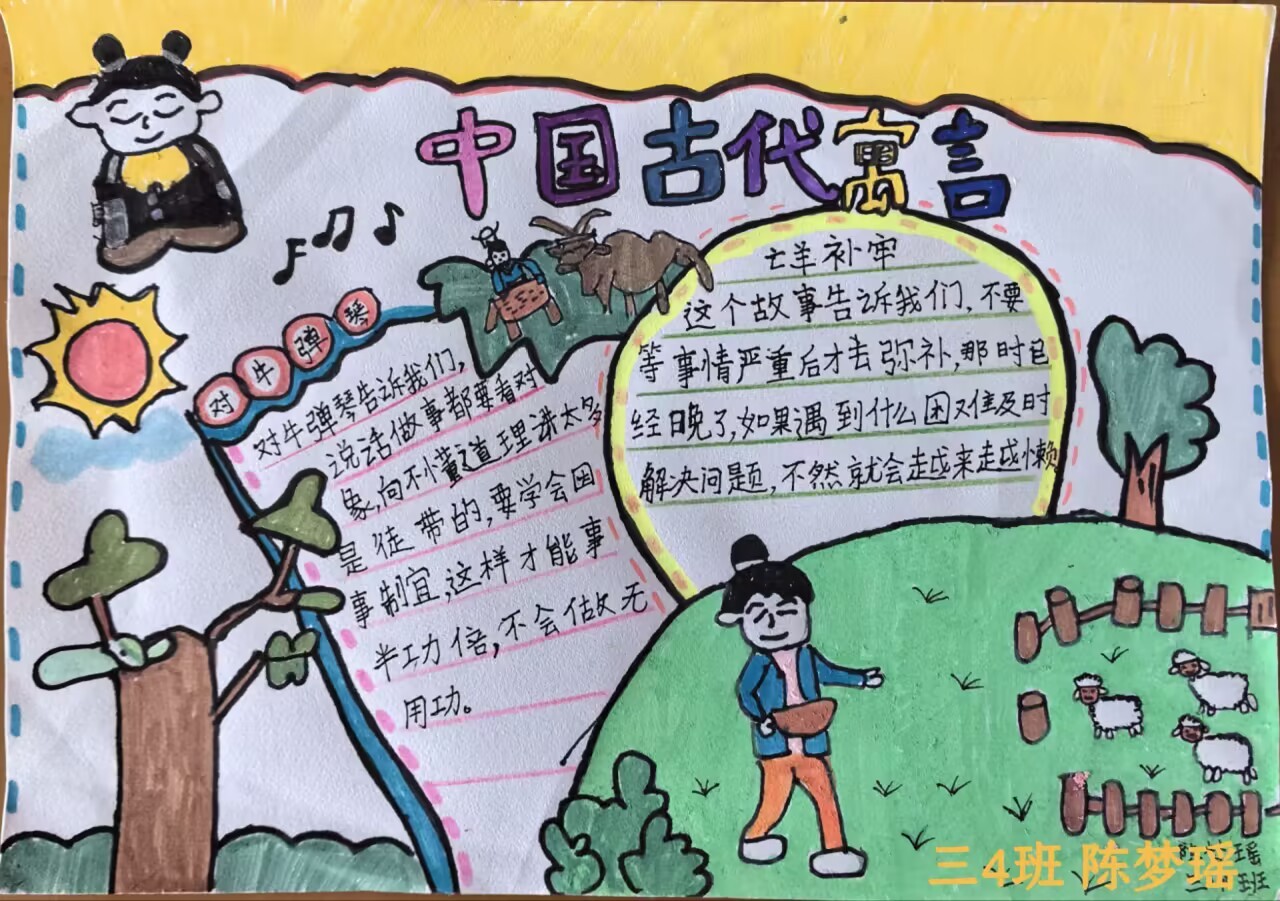 中国古代寓言
对牛弹琴
对牛弹琴告诉我们,
说话做事都要看对
象,向不懂道理讲太多
是徒带的,要学会因
事制宜,这样才能事
半功倍,不会做无
用功。
亡羊补牢
这个故事告诉我们,不要
等事情严重后才去弥补,那时已
经晚了,如果遇到什么困难及时
解决问题,不然就会越来越懒
三4班 陈梦瑶